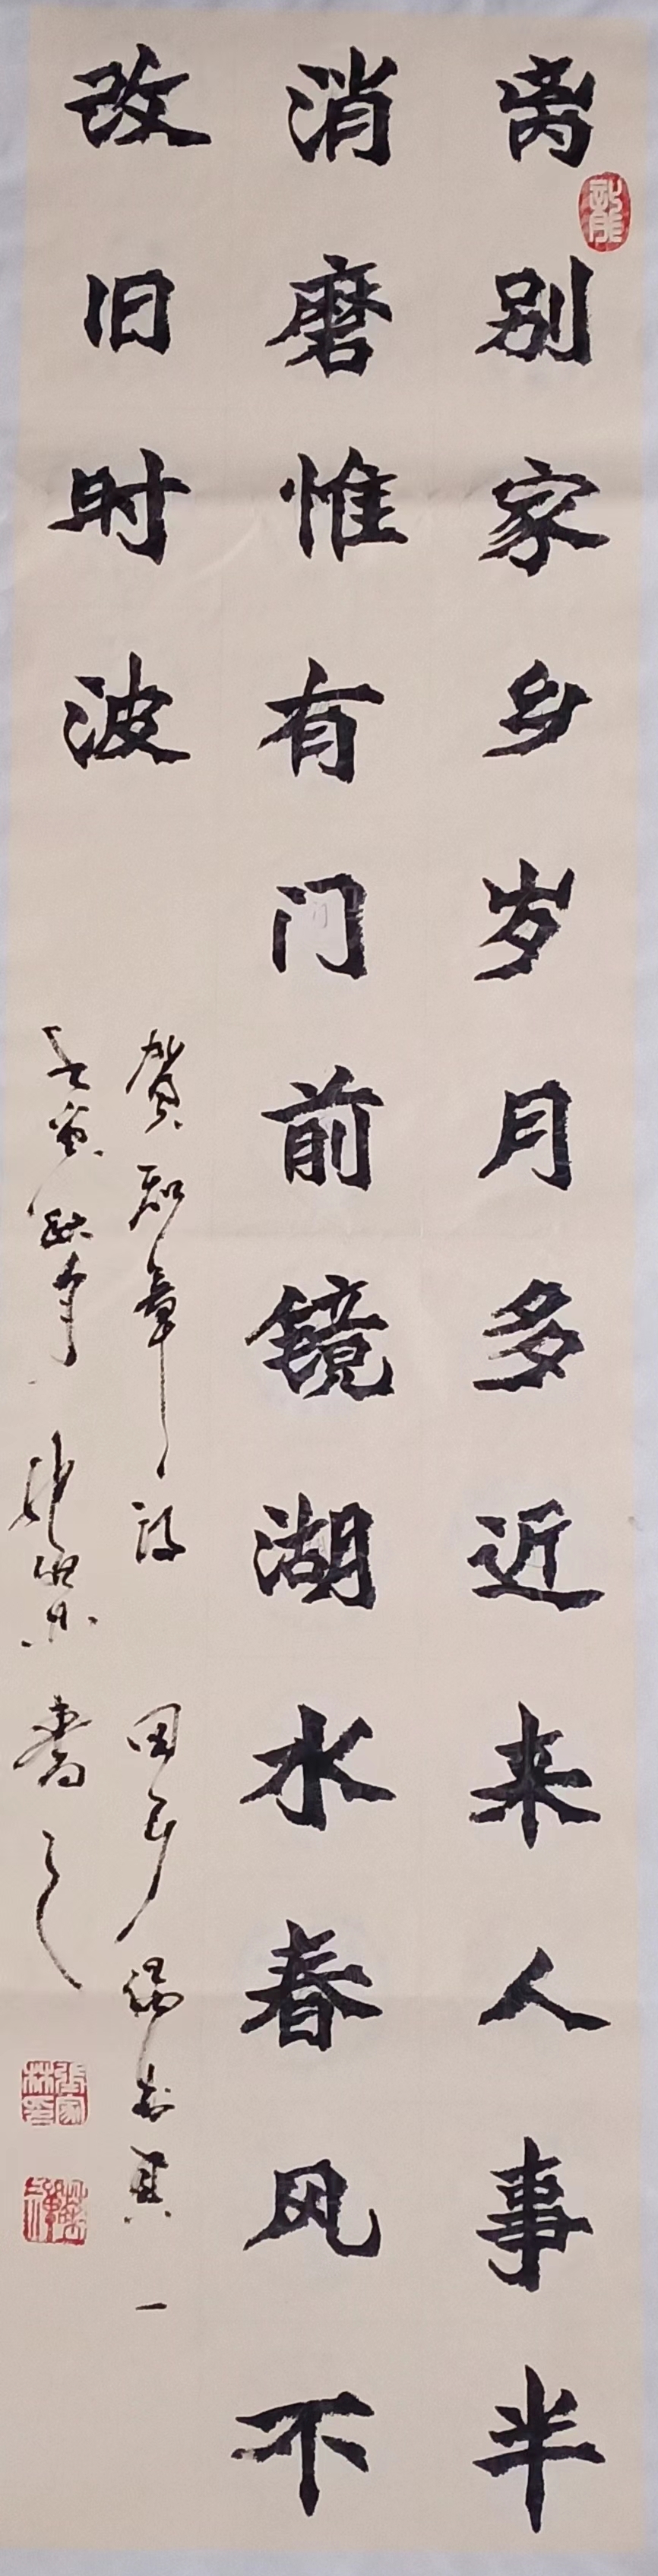 离别家乡岁月多近来人事半
消磨惟有门前镜湖水春风不
改旧时波
贺知章诗 回乡偶书其一
书之
龍